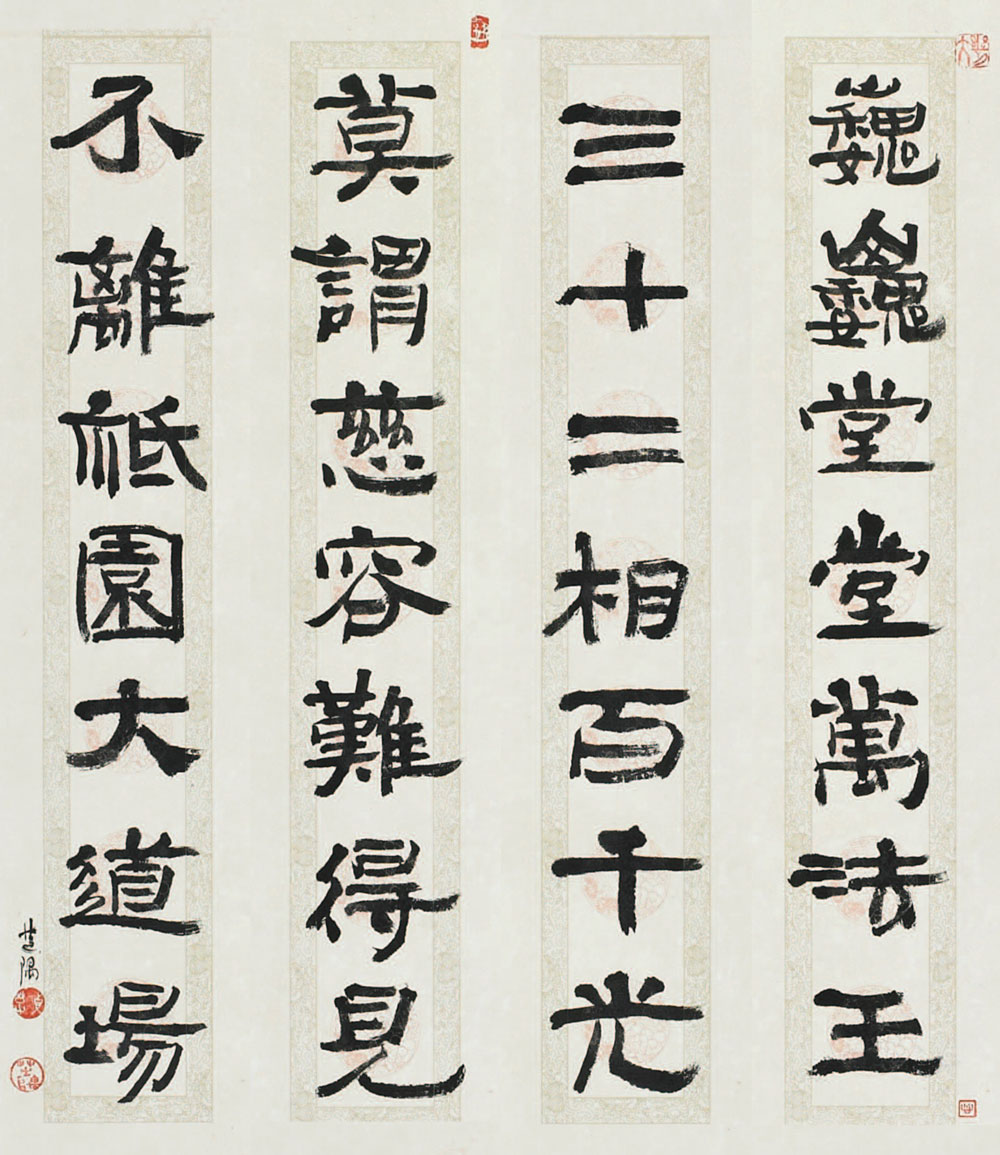 巍巍堂堂萬法王
三十二相百千光
莫謂慈容難得見
不離祇園大道場